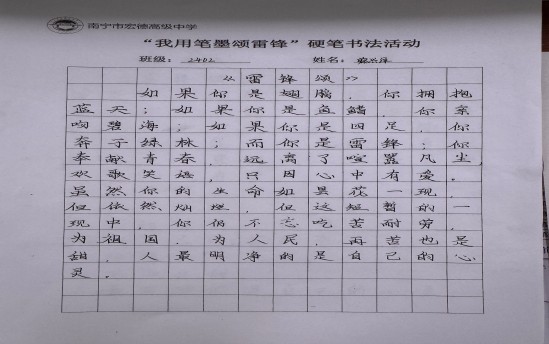 南宁市宏德高级中学
“我用笔墨颂雷锋”硬笔书法活动
班级：2402 姓名：
《雷锋颂》
如果你是翅膀，你拥抱
蓝天；如果你是鱼鳍，你亲
吻碧海；如果你是四足，你
奔于林；而你是雷锋；你
奉献青春，远离了喧嚣凡尘，
欢歌笑语，只因心中有爱。
虽然你的生命如昙花一现，
但依然灿烂，但这短暂的一
现中，你仍不忘吃苦耐劳，
为祖国，为人民，再苦也是
甜，人最明净的是自己的心
灵。